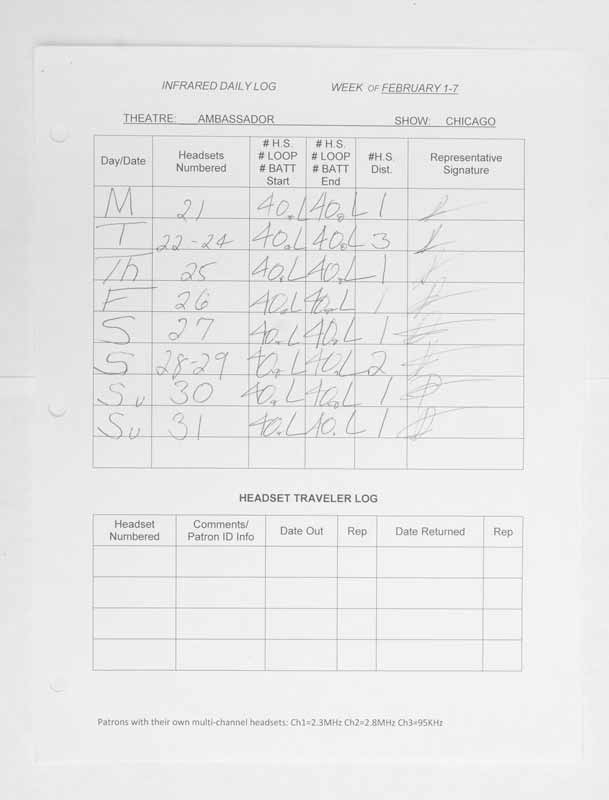 INFRARED DAILY LOG WEEK OF FEBRUARY 1-7
THEATRE: AMBASSADOR SHOW: CHICAGO
Day/Date Headsets Numbered # H.S. # LOOP # BATT Start # H.S. # LOOP # BATT End #H.S. Dist. Representative Signature
M 21 40.L 40.L 1
T 22-24 40.L 40.L 3
Th 25 40.L 40.L 1
F 26 40.L 40.L 1
S 27 40.L 40.L 1
S 28-29 40.L 40.L 2
Su 30 40.L 40.L 1
Su 31 40.L 40.L 1
HEADSET TRAVELER LOG
Headset Numbered Comments/ Patron ID Info Date Out Rep Date Returned Rep
Patrons with their own multi-channel headsets: Ch1=2.3MHz Ch2=2.8MHz Ch3=95KHz